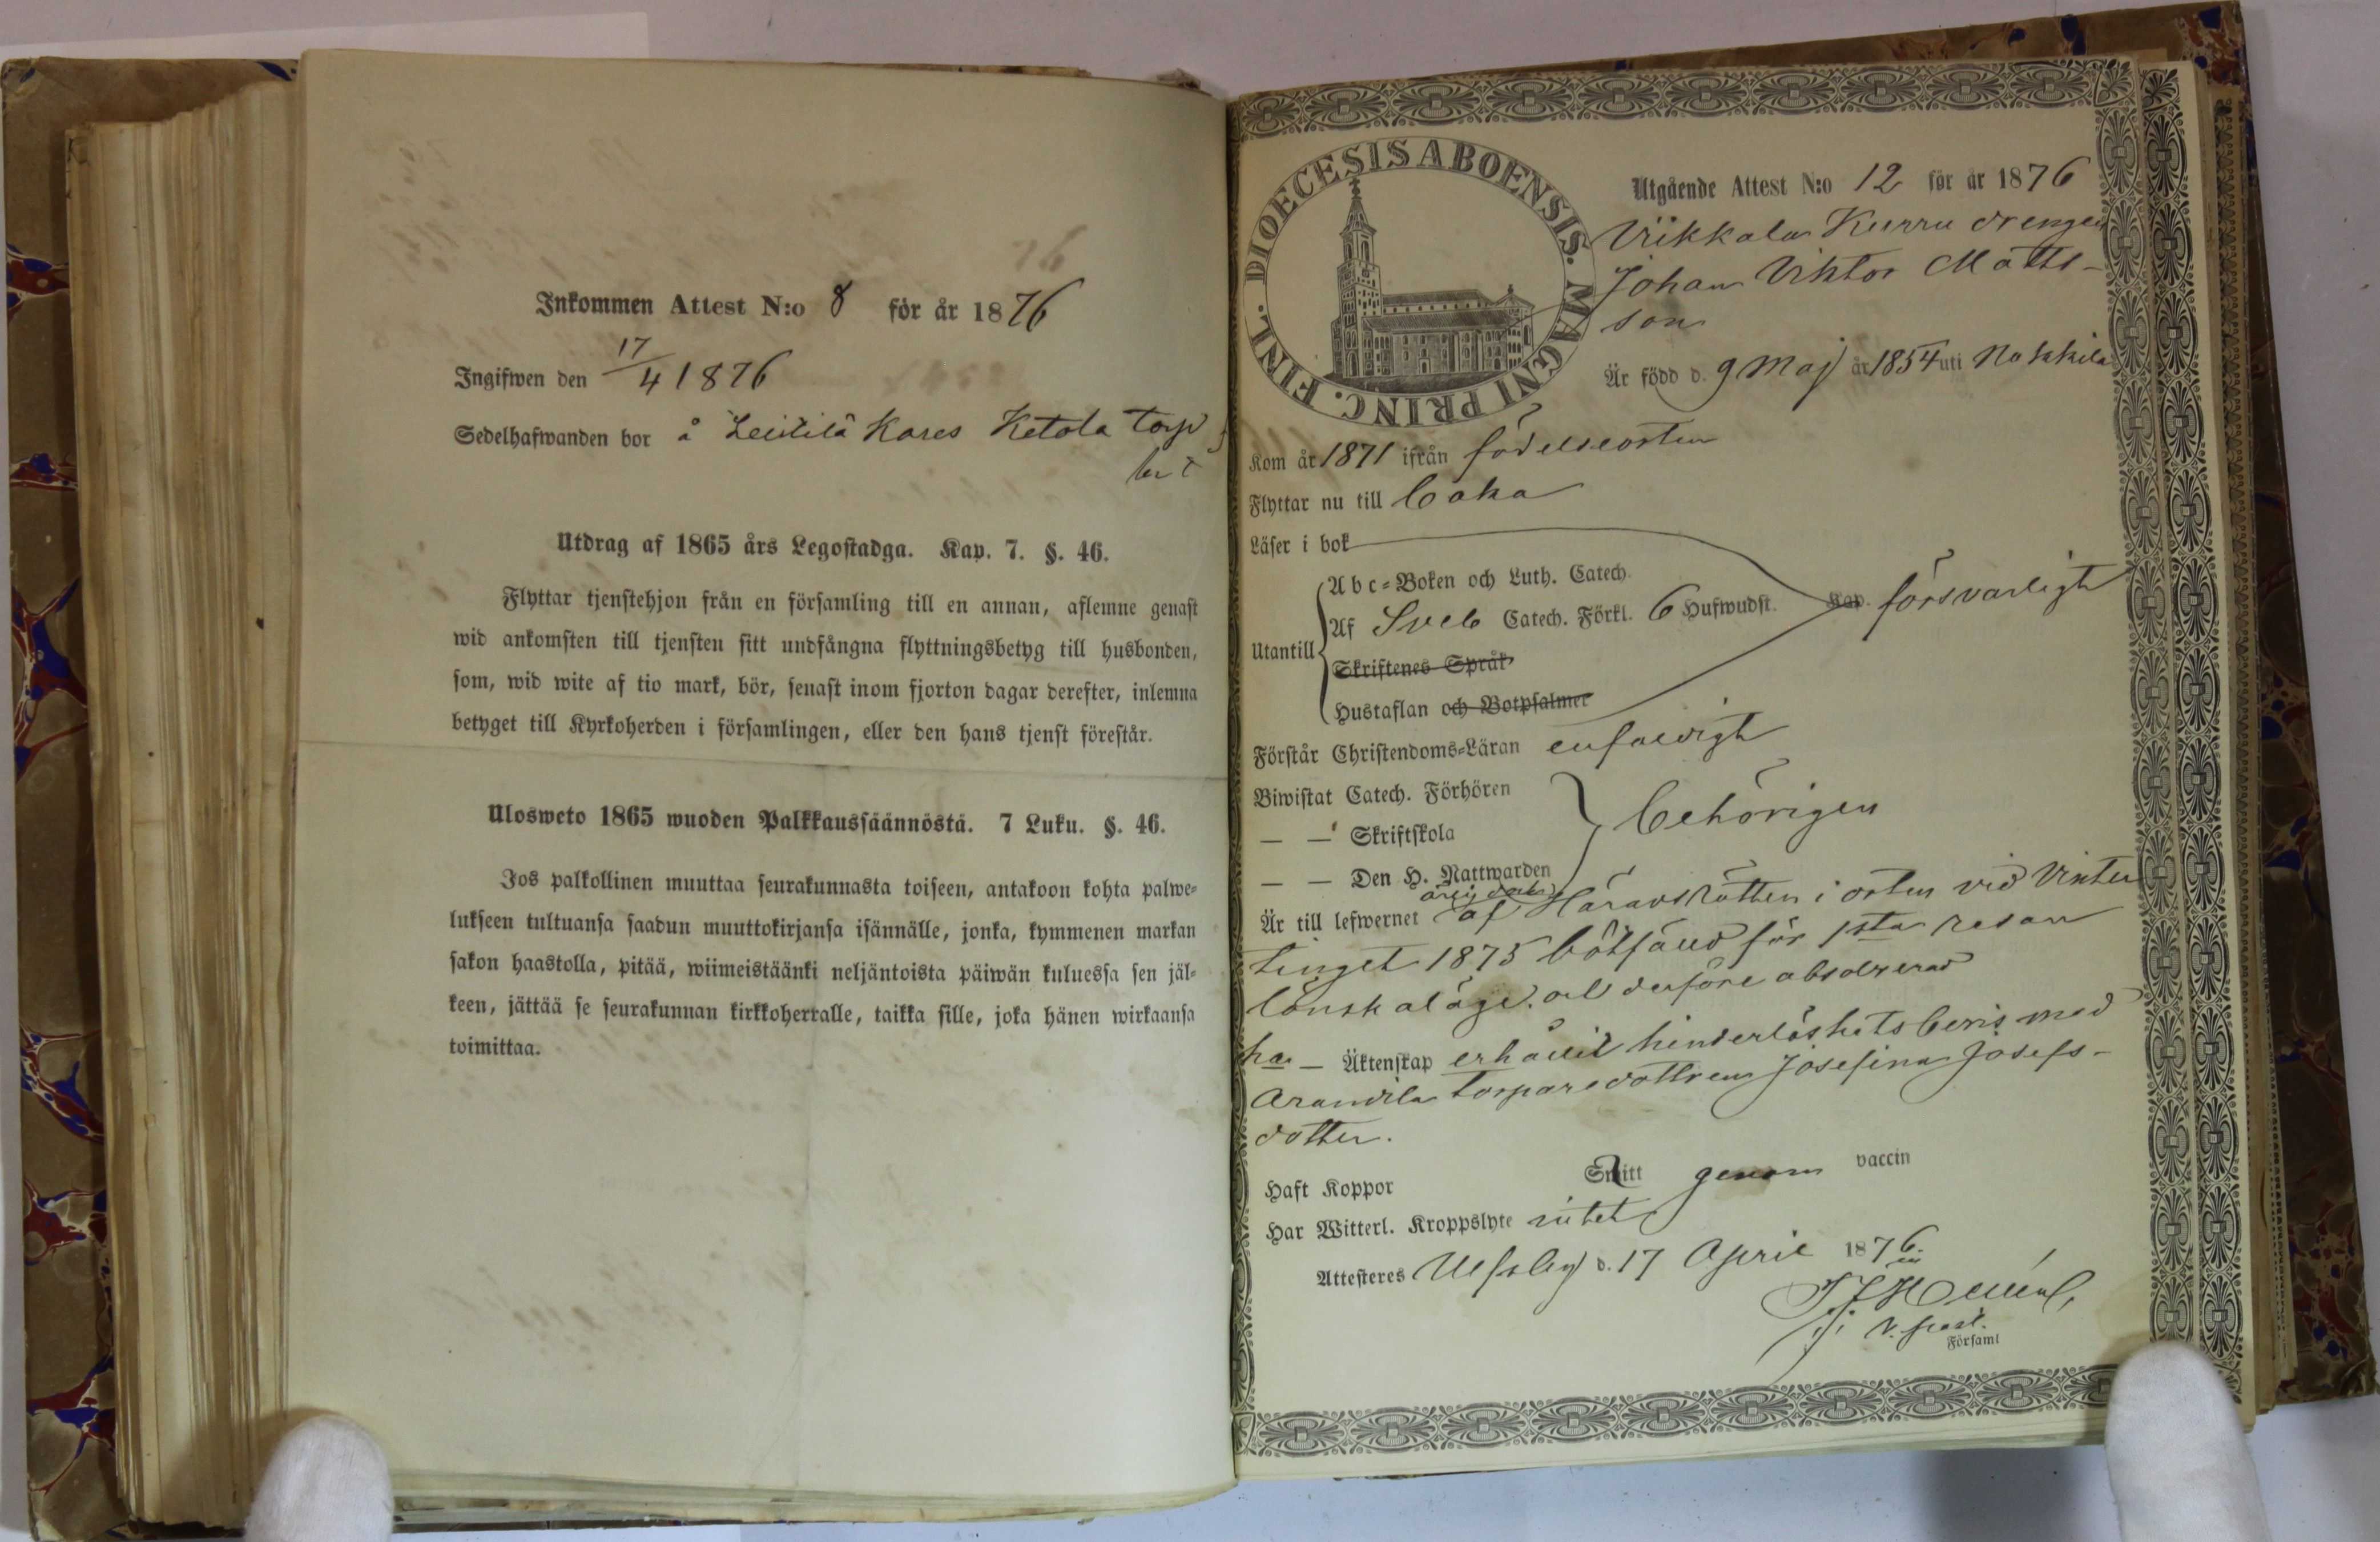 Inkommen Attest N:o 8 för år 1876
Ingifwen den 17/4 1876
Sedelhafwanden bor å Leistilä Kares Ketola torp
Utdrag af 1865 års Legostadga. Kap. 7. §. 46.
Flyttar tjenstehjon från en församling till en annan, aflemne genast
wid ankomsten till tjensten sitt undfångna flyttningsbetyg till husbonden,
som, wid wite af tio mark, bör, senast inom fjorton dagar derefter, inlemna
betyget till Kyrkoherden i församlingen, eller den hans tjenst förestår.
Ulosweto 1865 wuoden Palkkaussäännöstä. 7 Luku. §. 46.
Jos palkollinen muuttaa seurakunnasta toiseen, antakoon kohta palwe-
lukseen tultuansa saadun muuttokirjansa isännälle, jonka, kymmenen markan
sakon haastolla, pitää, wiimeistäänki neljäntoista päiwän kuluessa sen jäl-
keen, jättää se seurakunnan kirkkoherralle, taikka sille, joka hänen wirkaansa
toimittaa.
DIOECESIS ABOENSIS. MAGNI PRINC. FINL.
Utgående Attest N:o 12 för år 1876
Viikkala Kurru drengen
Johan Viktor Matts-
son
Är född d. 9 Maj år 1854 uti Nakkila
Kom år 1871 ifrån födelseorten
Flyttar nu till
Läser i bok
Abc-Boken och Luth. Catech.
Utantill Af Sveb Catech. Förkl. 6 Hufwudst. Kap. försvarligt
Skriftenes Språk
Hustaflan och Botpsalmer
Förstår Christendoms-Läran enfaldigt
Biwistat Catech. Förhören
— — Skriftskola behörigen
— — Den H. Nattwarden
Är till lefwernet af Häradsrätten i orten vid Vinter
tinget 1875 bötfälld för 1sta resan
lönskaläge och derföre absolverad
har — Äktenskap erhållit hinderlöshetsbevis med
Arandila torparedottren Josefina Josefs-
dotter.
Haft Koppor Smitt genom vaccin
Har Witterl. Kroppslyte intet
Attesteres Ulfsby d. 17 April 1876.
v. past.
Församl